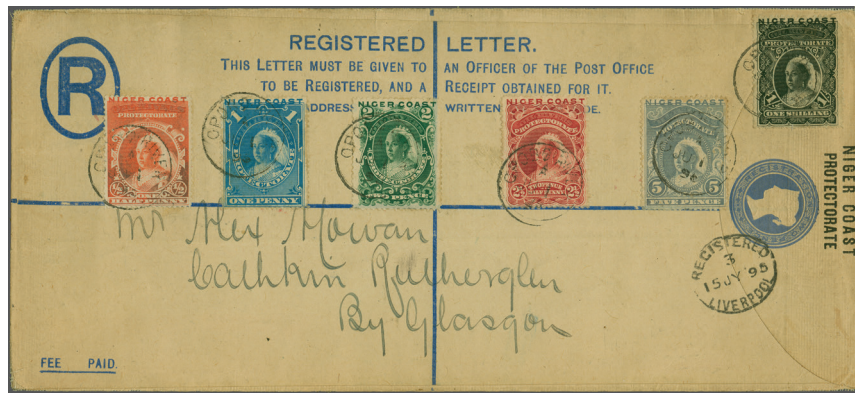 REGISTERED LETTER.
THIS LETTER MUST BE GIVEN TO AN OFFICER OF THE POST OFFICE
TO BE REGISTERED, AND A RECEIPT OBTAINED FOR IT.
ADDRESS WRITTEN DE.
R
NIGER COAST
PROTECTORATE
½ ½
HALF PENNY
NIGER COAST
1 1
PROTECTORATE
ONE PENNY
NIGER COAST
2 2
NIGER COAST
PROTECTORATE
2½ 2½
NIGER COAST
PROTECTORATE
5 5
FIVE PENCE
NIGER COAST
PROTECTORATE
1/- 1/-
ONE SHILLING
NIGER COAST
PROTECTORATE
REGISTERED
3
15 JY 95
LIVERPOOL
Mr Alex Mowan
Cathkin Rutherglen
By Glasgow
FEE PAID.